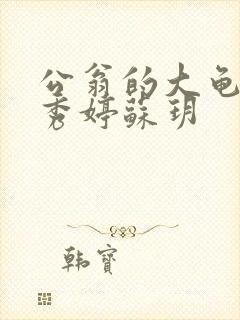 公翁的大龟
秀婷蘇玥
韩寶